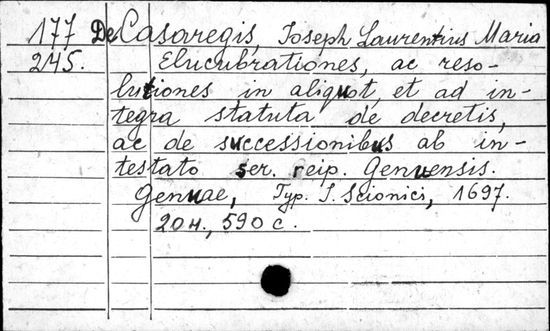 177 De Casaregis, Joseph Laurentius Maria
245. Elucubrationes, ac reso-
lutiones in aliquot, et ad in-
tegra statuta de decretis,
ac de successionibus ab in-
testato ser. reip. Genuensis.
Genuae, Typ. I. Scionici, 1697.
20 н., 590 с.